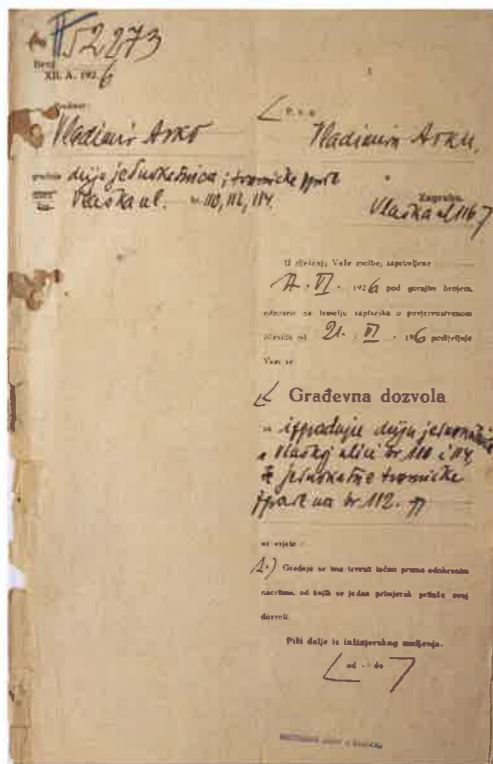 II 52273
Broj
XII. A. 1926
Predmet:
Vladimir Arko
gradnja dviju jednokatnica i tvorničke zgrade
Vlaška ul. br. 110, 112, 114.
P. n. g.
Vladimiru Arku,
Zagreb.
Vlaška ul 116
U riješenju Vaše molbe, zaprimljene
VI. 1926 pod gornjim brojem,
odnosno na temelju zapisnika o povjerenstvenom
očevidu od 21. VI. 1926 podjeljuje
Vam se
Građevna dozvola
za izgradnju dviju jednokatnica
u Vlaškoj ulici br 110 i 114,
te jednokatne tvorničke
zgrade na br. 112.
uz uvjete:
1.) Gradnja se ima izvesti točno prema odobrenim
nacrtima, od kojih se jedan primjerak prilaže ovoj
dozvoli.
Piši dalje iz inžinjerskog mnijenja.
od - do